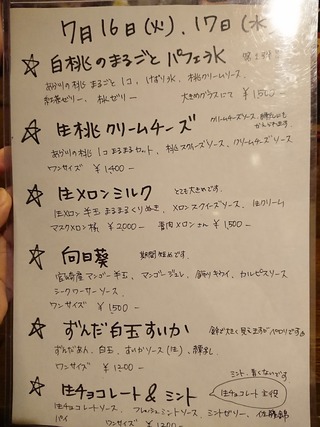 7月16日(火)、17日(水
☆ 白桃のまるごと パフェラ氷
あら川の桃 まるまる 1コ、けずり氷、桃クリームソース
紅茶ゼリー、桃ゼリー 大きめグラスにて ¥1,500-
☆ 生桃クリームチーズ
クリームチーズソース、
あら川の桃 1コ まるまるカット、桃スムージーソース、クリームチーズソース
ワンサイズ ¥1400-
☆ 生メロンミルク とても大きめです。
生メロン 半玉 まるまるくりぬき、メロンスクイーズソース、生クリーム
マスクメロン ¥2,000- 青肉メロンさん ¥1,500-
☆ 向日葵 期間短めです。
宮崎産マンゴー半玉、マンゴージュレ、飾りキウイ、カルピスソース
シークワーサーソース
ワンサイズ ¥1500-
☆ ずんだ白玉すいか
ずんだあん、白玉、すいかソース(生)、練乳
ワンサイズ ¥1200-
☆ 生チョコレート & ミント
ミント、青くないです
生チョコレート主役
生チョコレートソース、フレッシュミントソース、ミントゼリー、佐藤錦
パイ ワンサイズ